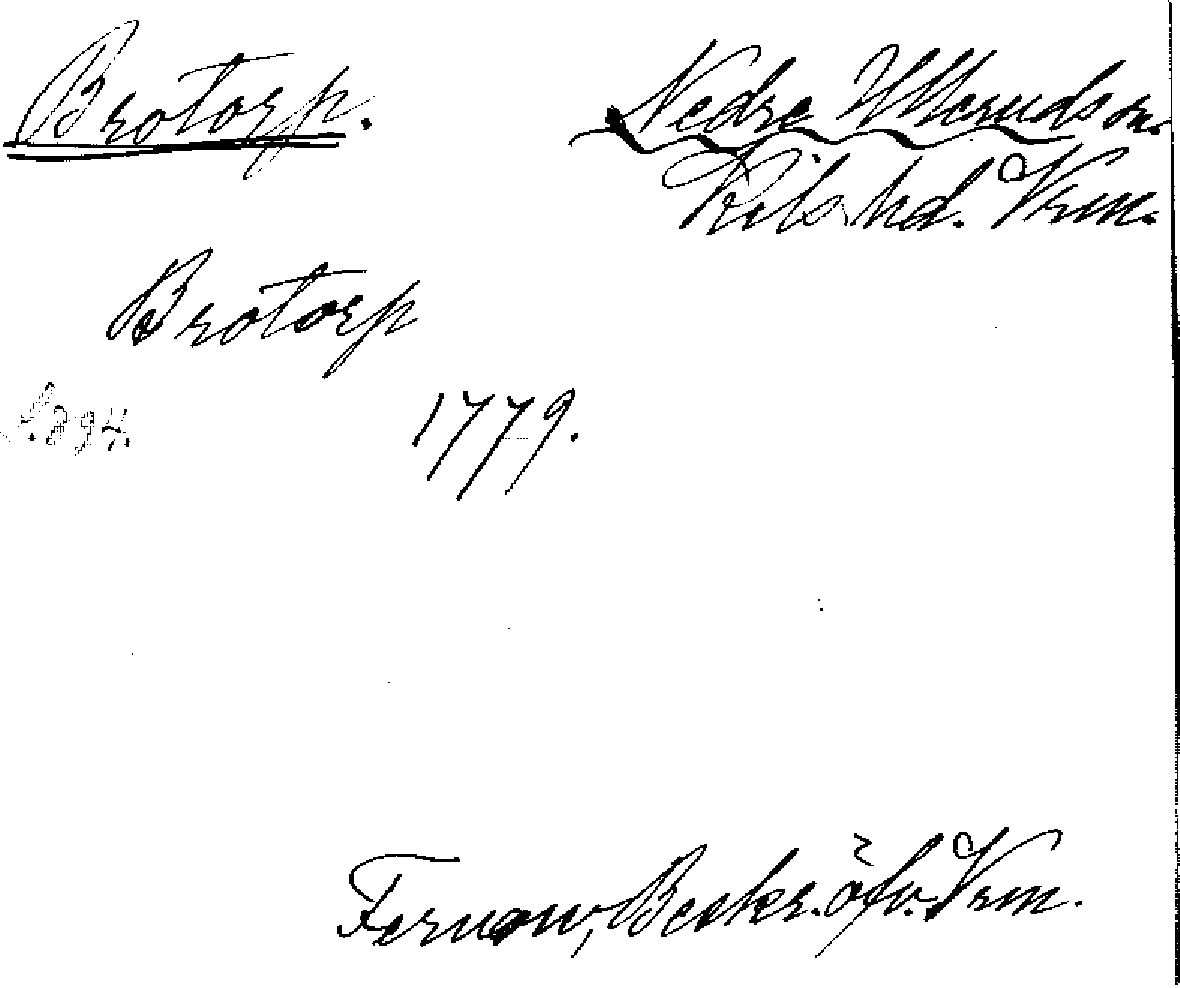 Brotorp.
Nedre Ulleruds sn.
Kils hd. Vrm.
Brotorp
s. 394.
1779.
Fernow, Beskr. öfv. Vrm.